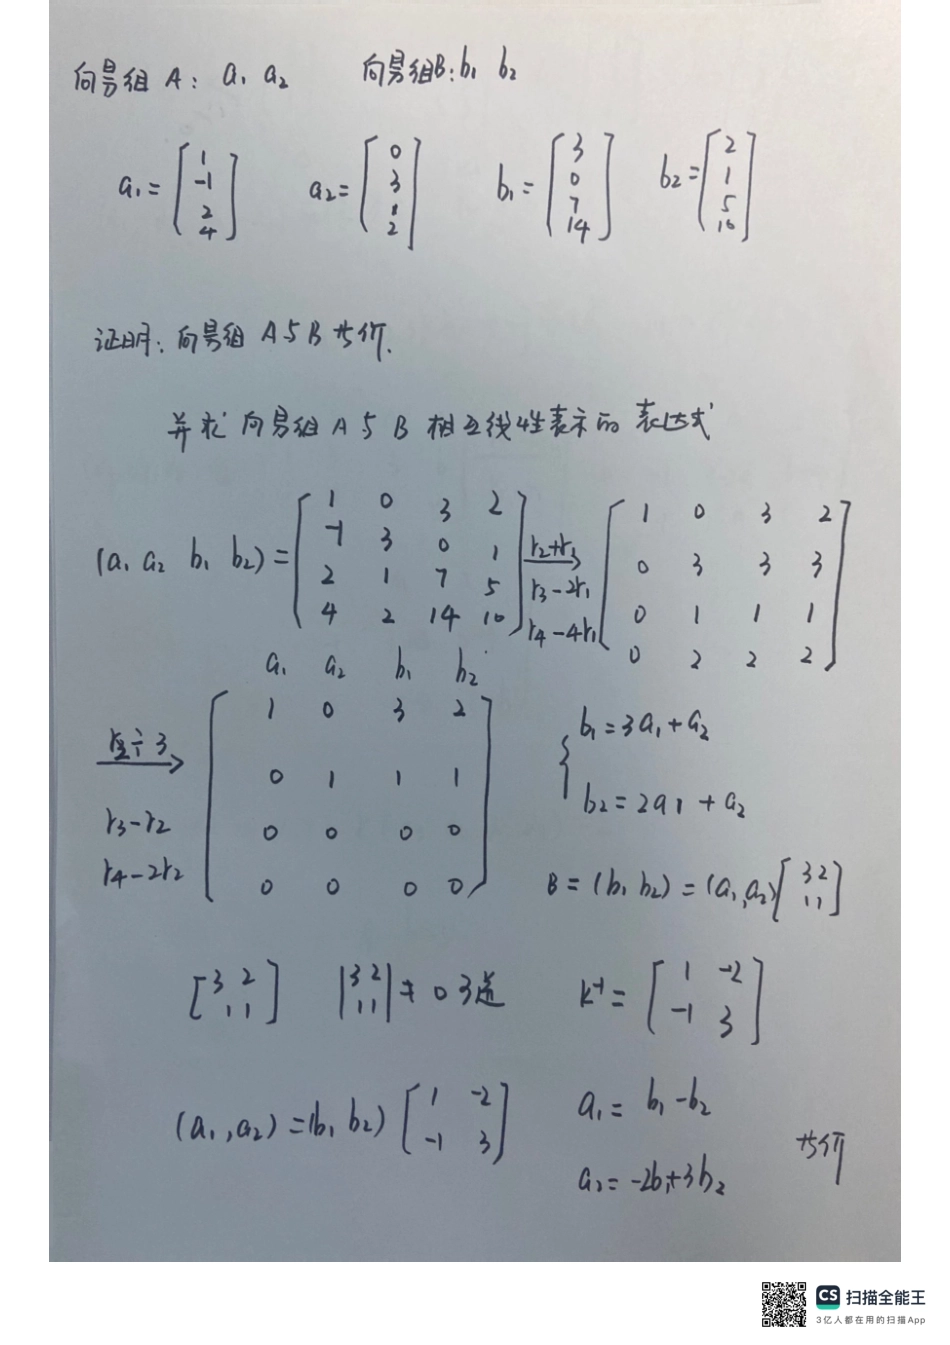 向量组 A: a₁ a₂ 向量组B: b₁ b₂
a₁ = [1 -1 2 4] a₂ = [0 3 1 2] b₁ = [3 0 7 14] b₂ = [2 1 5 10]
证明: 向量组 A与B 等价.
并求 向量组 A 与 B 相互线性表示的 表达式
(a₁ a₂ b₁ b₂) = [1 0 3 2; -1 3 0 1; 2 1 7 5; 4 2 14 10] r₂+r₃ r₃-2r₁ r₄-4r₁ → [1 0 3 2; 0 3 3 3; 0 1 1 1; 0 2 2 2]
a₁ a₂ b₁ b₂
r₂÷3 r₃-r₂ r₄-2r₂ → [1 0 3 2; 0 1 1 1; 0 0 0 0; 0 0 0 0]
{ b₁ = 3a₁ + a₂
b₂ = 2a₁ + a₂
B = (b₁ b₂) = (a₁, a₂) [3 2; 1 1]
[3 2; 1 1] |3 2; 1 1| ≠ 0 可逆 K⁻¹ = [1 -2; -1 3]
(a₁, a₂) = (b₁ b₂) [1 -2; -1 3]
a₁ = b₁ - b₂
a₂ = -2b₁ + 3b₂
等价
CS 扫描全能王
3亿人都在用的扫描App